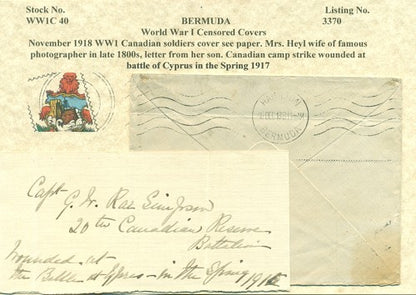 Stock No.
WW1C 40
BERMUDA
Listing No.
3370
World War I Censored Covers
November 1918 WW1 Canadian soldiers cover see paper. Mrs. Heyl wife of famous
photographer in late 1800s, letter from her son. Canadian camp strike wounded at
battle of Cyprus in the Spring 1917
BERMUDA
Capt
G. W. Rae Simpson
20th Canadian Reserve
Battalion
Wounded at
the Battle at Ypres - in the Spring